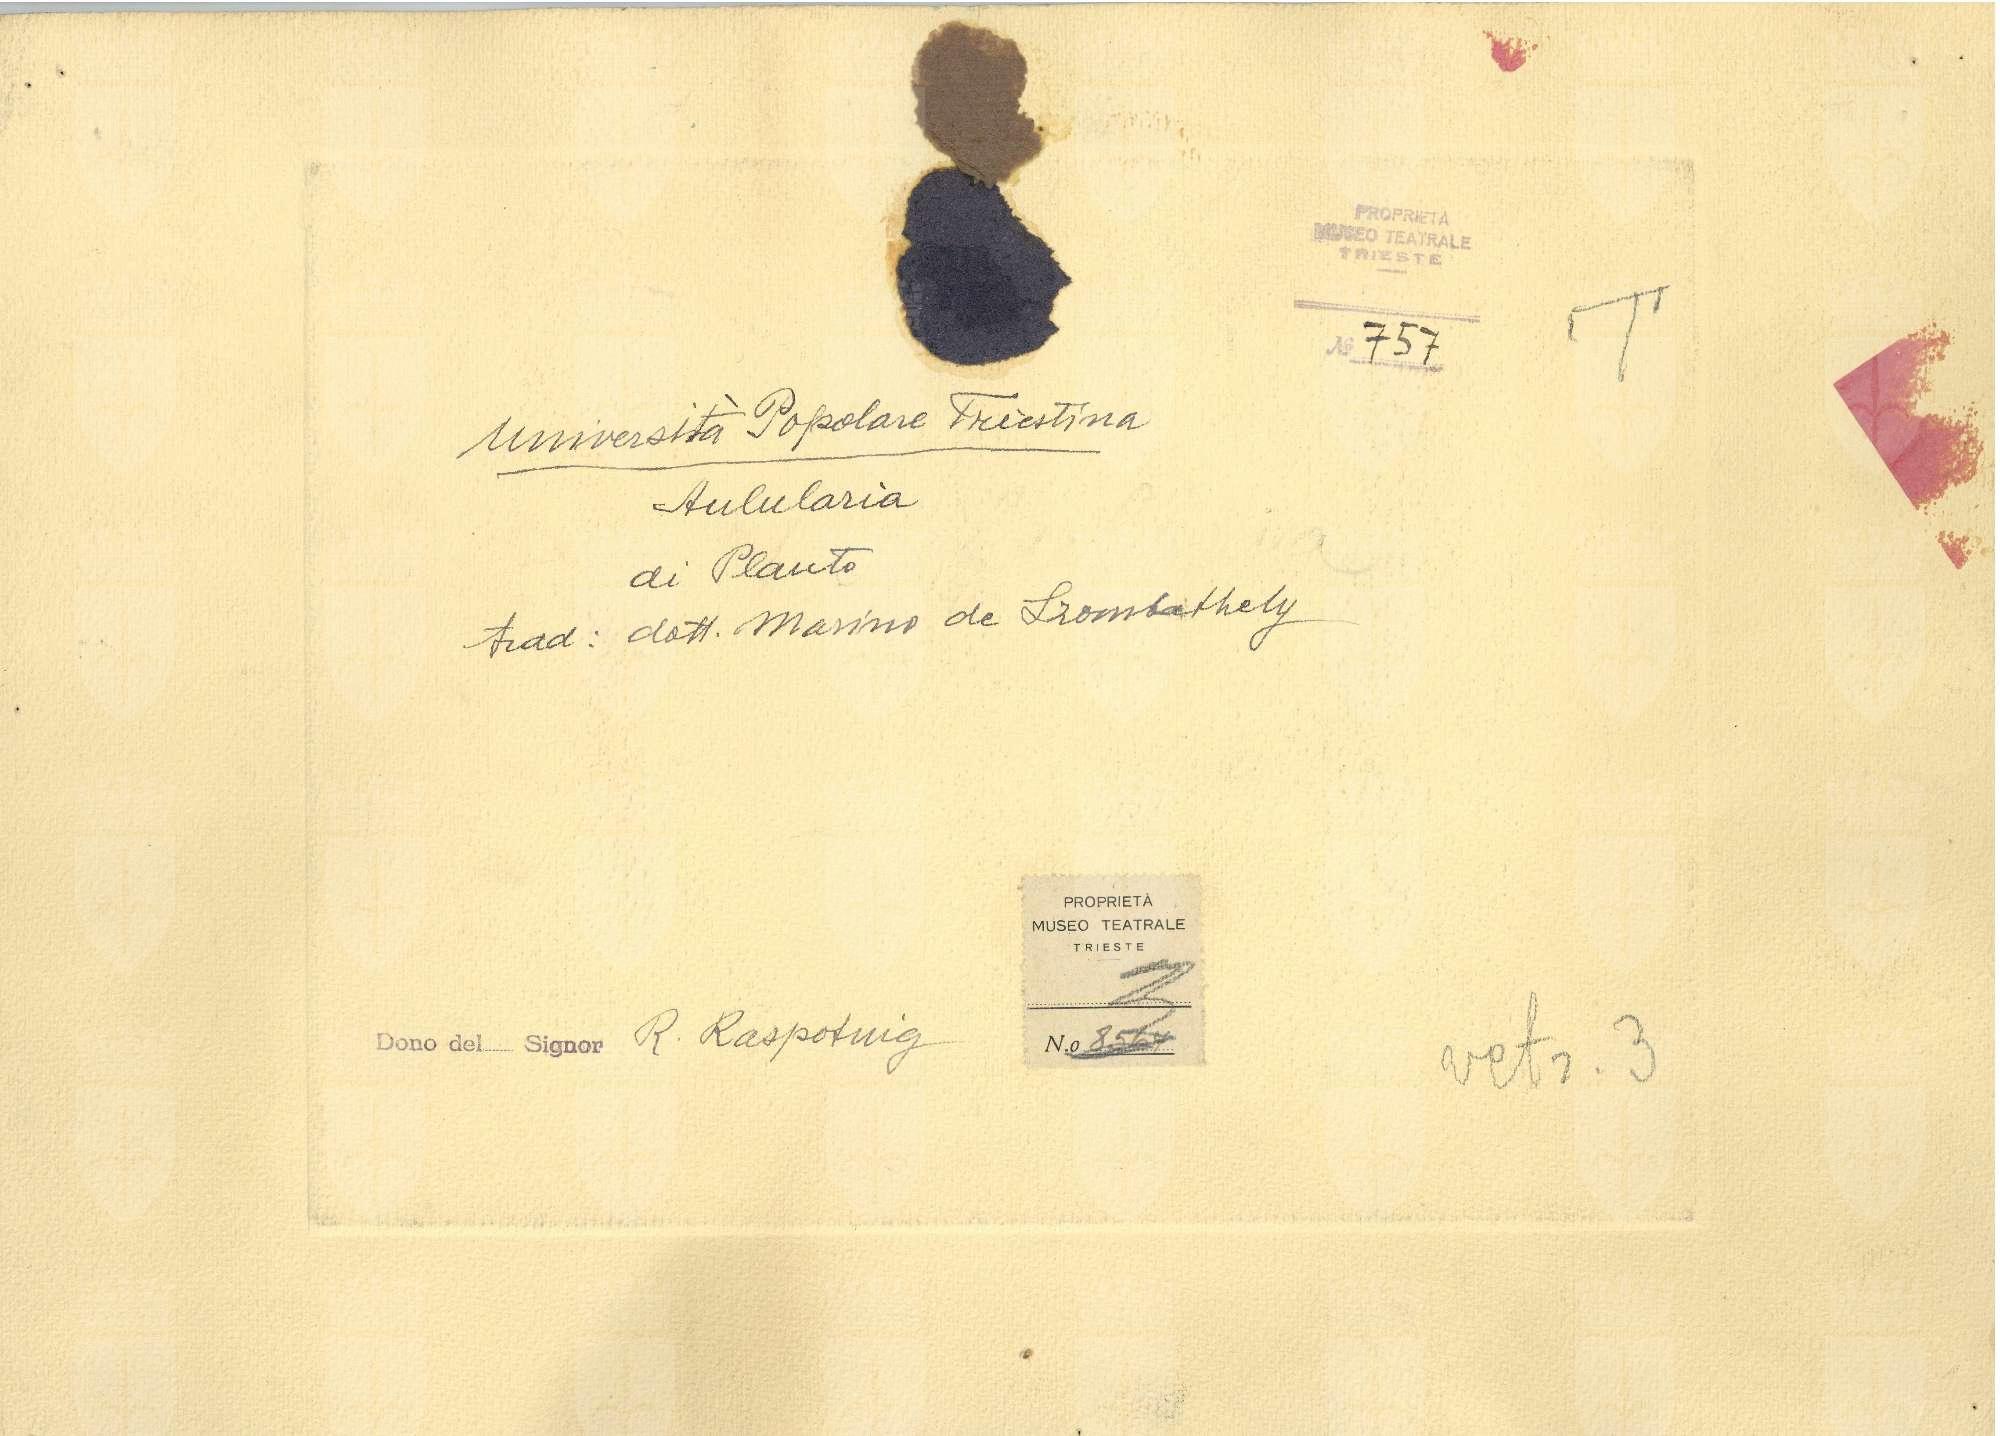 PROPRIETÀ
MUSEO TEATRALE
TRIESTE
№ 757
T
Università Popolare Triestina
Aulularia
di Plauto
trad: dott. Marino de Szombathely
PROPRIETÀ
MUSEO TEATRALE
TRIESTE
N.o
Dono del Signor R. Raspotnig
vetr. 3